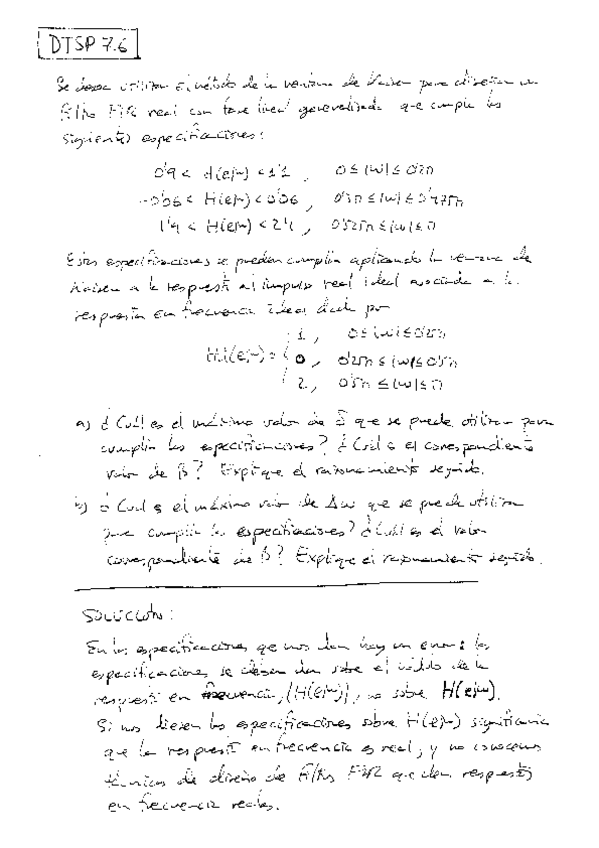 DTSP 7.6
Se desea utilizar el método de la ventana de Kaiser para diseñar un
filtro FIR real con fase lineal generalizada que cumpla las
siguientes especificaciones:
0'9 < H(e^jw) < 1'1 , 0 ≤ |w| ≤ 0'2π
-0'06 < H(e^jw) < 0'06 , 0'3π ≤ |w| ≤ 0'475π
1'9 < H(e^jw) < 2'1 , 0'525π ≤ |w| ≤ π
Estas especificaciones se pueden cumplir aplicando la ventana de
Kaiser a la respuesta al impulso real ideal asociada a la
respuesta en frecuencia ideal dada por
1 , 0 ≤ |w| ≤ 0'25π
Hd(e^jw) = { 0 , 0'25π ≤ |w| ≤ 0'5π
2 , 0'5π ≤ |w| ≤ π
a) ¿Cuál es el máximo valor de δ que se puede utilizar para
cumplir las especificaciones? ¿Cuál es el correspondiente
valor de β? Explique el razonamiento seguido.
b) ¿Cuál es el máximo valor de Δw que se puede utilizar
para cumplir las especificaciones? ¿Cuál es el valor
correspondiente de β? Explique el razonamiento seguido.
SOLUCIÓN:
En las especificaciones que nos dan hay un error: las
especificaciones se deben dar sobre el módulo de la
respuesta en frecuencia, |H(e^jw)|, no sobre H(e^jw).
Si nos diesen las especificaciones sobre H(e^jw) significaría
que la respuesta en frecuencia es real, y no conocemos
técnicas de diseño de filtros FIR que den respuestas
en frecuencia reales.